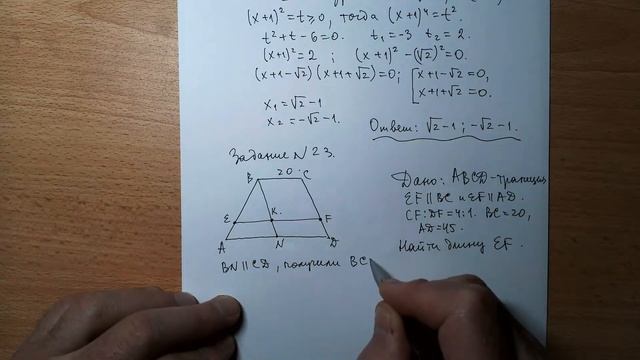 (x+1)²=t⩾0, тогда (x+1)⁴=t².
t²+t-6=0. t₁=-3 t₂=2.
(x+1)²=2 ; (x+1)²-(√2)²=0.
(x+1-√2)(x+1+√2)=0; [x+1-√2=0,
x+1+√2=0.
x₁=√2-1
x₂=-√2-1.
Ответ: √2-1; -√2-1.
Задание N23.
B 20 C
E K F
A N D
BN||CD, получили BC
Дано: ABCD-трапеция
EF||BC и EF||AD.
CF:DF=4:1. BC=20,
AD=45.
Найти длину EF.